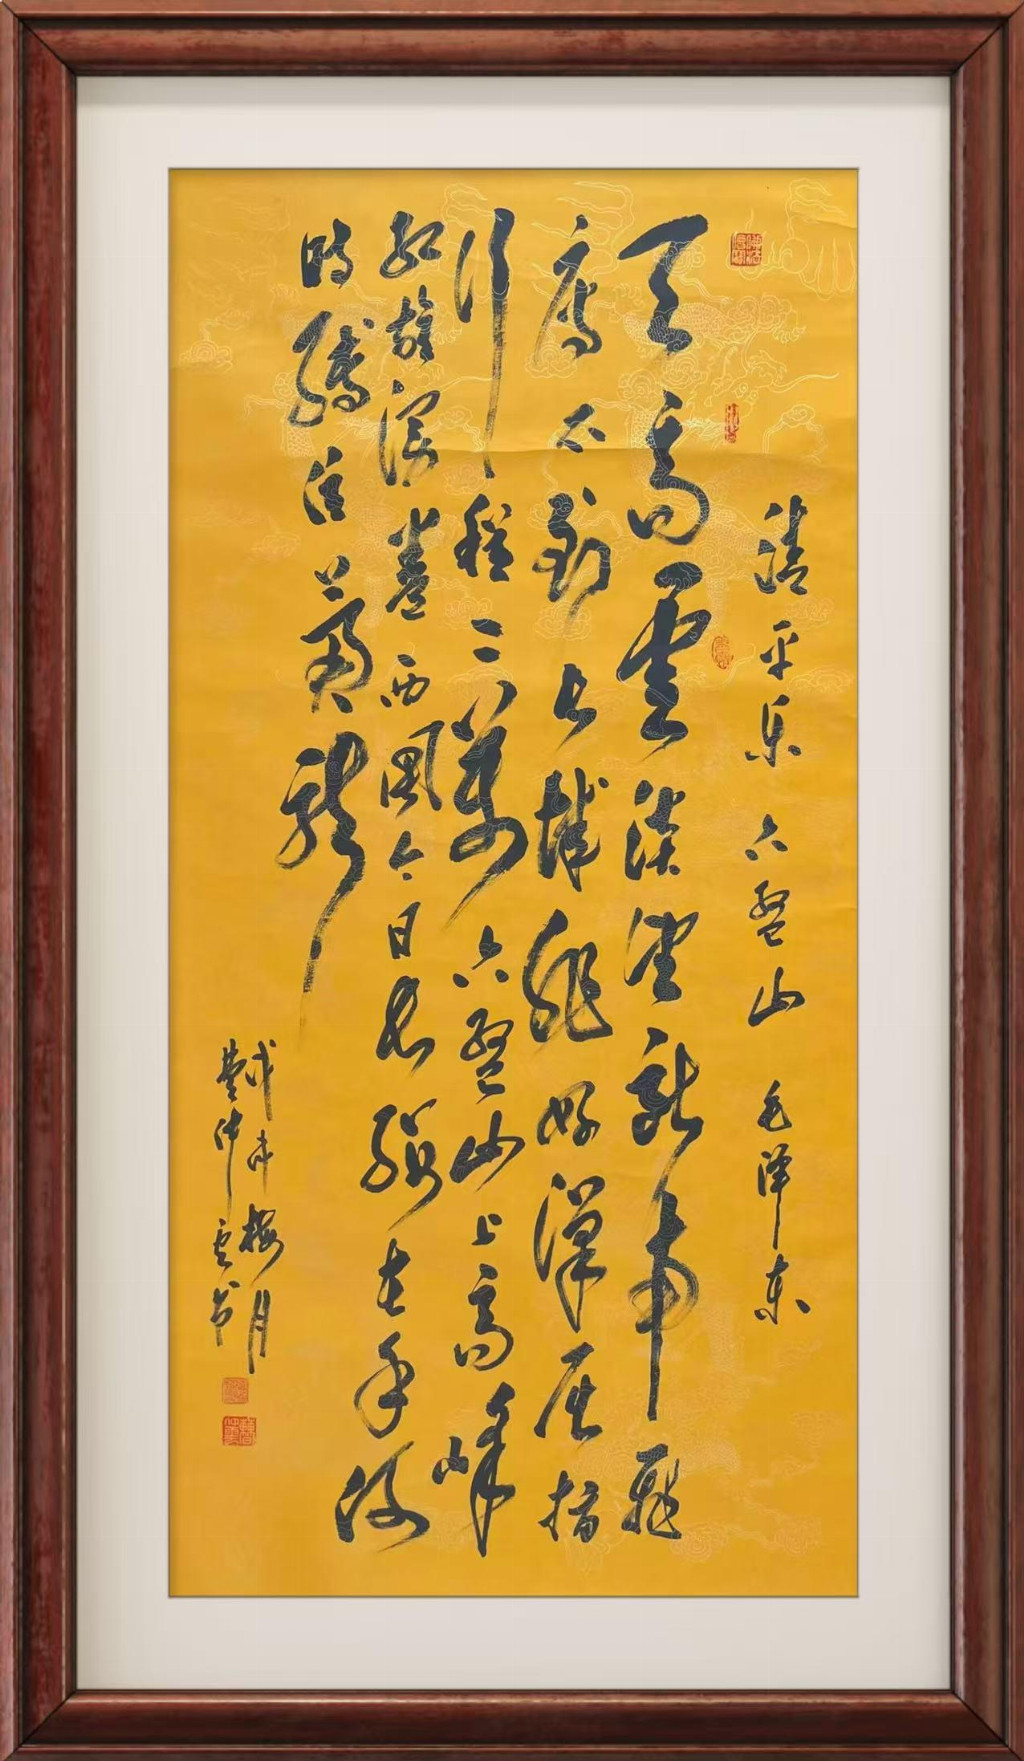 清平乐 六盘山 毛泽东
天高雲淡望断南飛
雁不到长城非好漢屈指
行程二萬六盘山上高峰
红旗漫卷西風今日长缨在手何
时缚住蒼龍
梅月
仲雲书